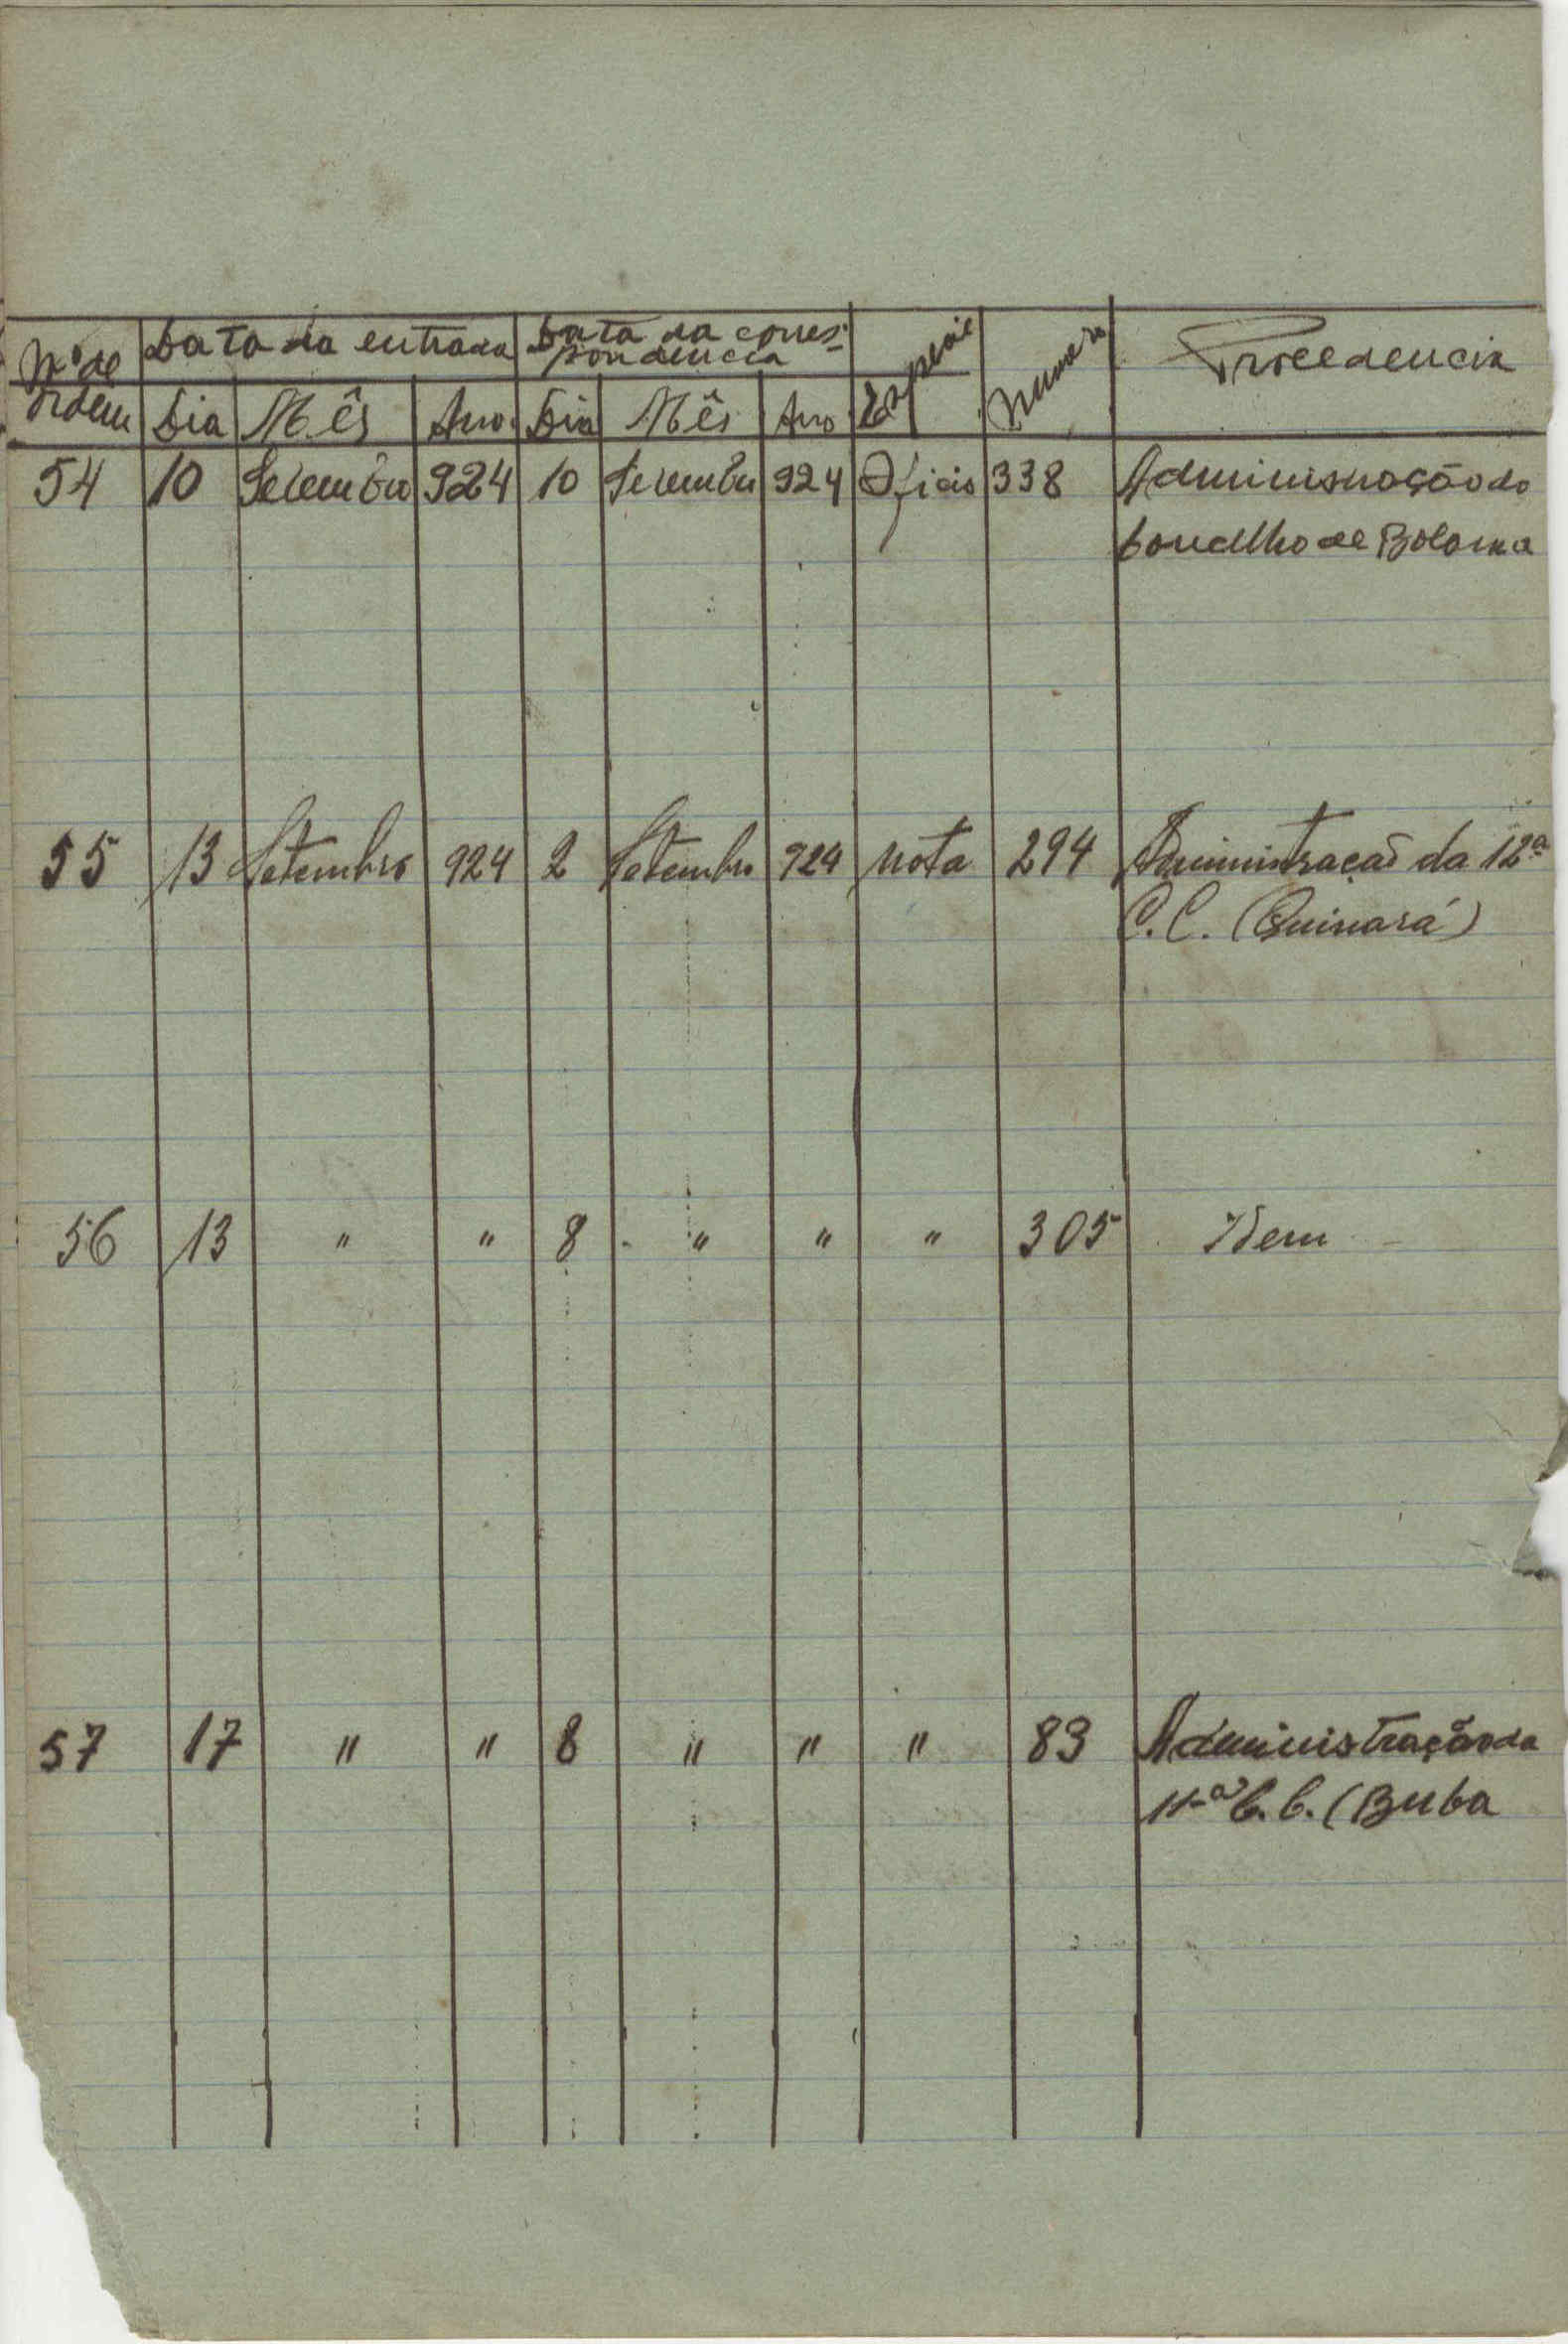 Nº de ordem Data da entrada Data da corres- Especie Numero Procedencia
pondencia
Dia Mês Ano Dia Mês Ano
54 10 Setembro 924 10 Setembro 924 Oficio 338 Administração do
Concelho de Bolama
55 13 Setembro 924 2 Setembro 924 Nota 294 Administração da 12ª
C.C. (Quinará)
56 13 " " 8 " " " 305 Idem
57 17 " " 8 " " " 83 Administração da
11-ª C.C. (Buba